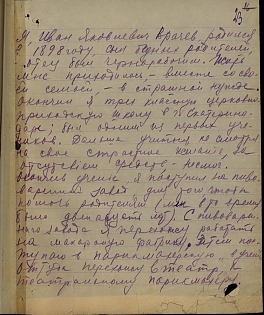 23
Я, Иван Яковлевич Врачев, родился
в 1898 году, сын бедных родителей,
отец был чернорабочим. Жить
мне приходилось – вместе со сво-
ей семьей, – в страшной нужде.
Окончил я трех классную церковно-
приходскую школу в г. Екатерино-
даре; был одним из первых уче-
ников. Дальше учиться не смотря
на свое страшное желание за
отсутствием средств – не мог.
Окончив учение, я поступил на пиво-
варенный завод для того чтобы
помочь родителям (мне в то время
было двенадцать лет). С пиварен-
ного завода я перехожу работать
на махорочную фабрику, затем пос-
тупаю в парикмахерскую, в учен.
Оттуда перехожу в театр, к
театральному парикмахеру.